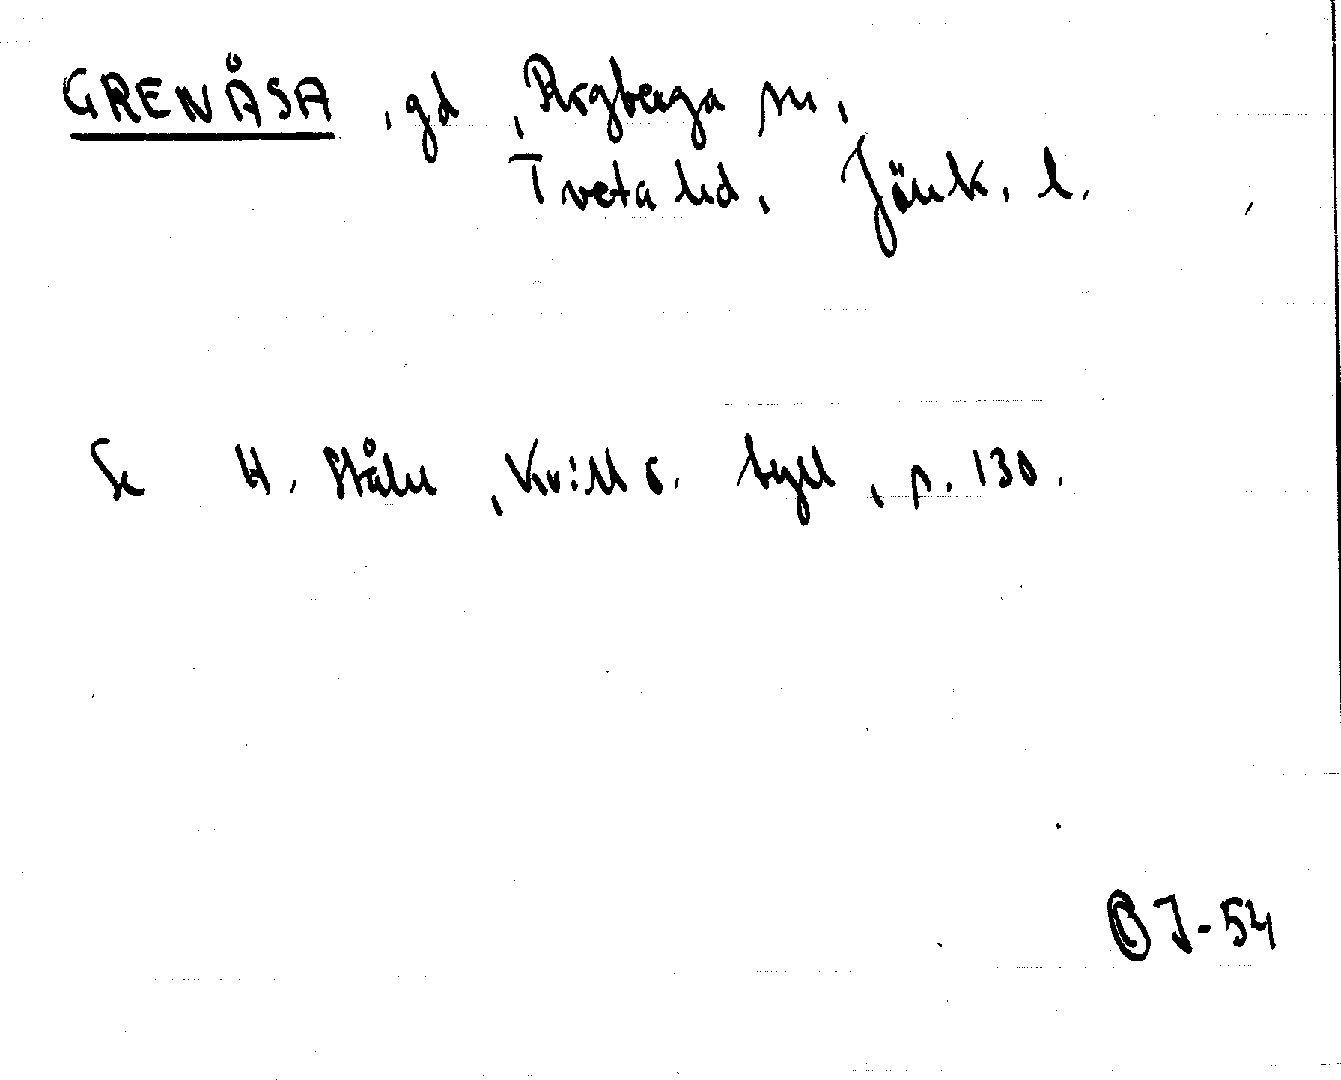 GRENÅSA, gd, Rogberga sn,
Tveta hd, Jönk. l.
Se H. Ståhl, Kvill o. tyll, p. 130.
OJ-54